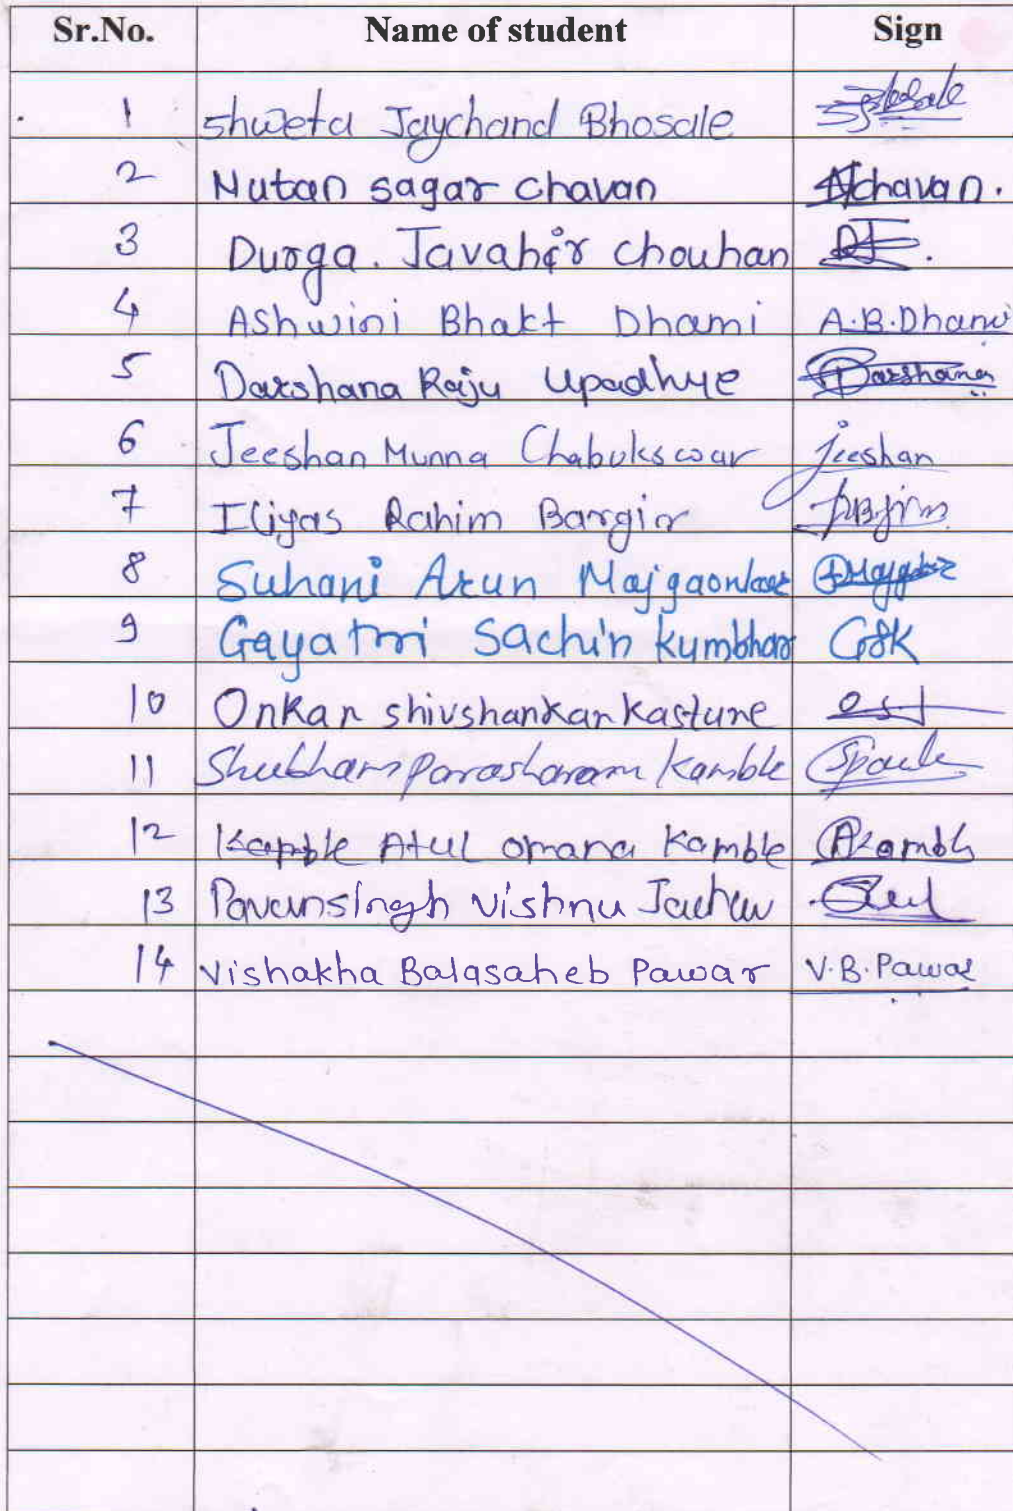 Sr.No. Name of student Sign
1 Shweta Jaychand Bhosale
2 Nutan sagar chavan Nchavan.
3 Durga. Javahir chouhan
4 Ashwini Bhakt Dhami A.B.Dhami
5 Darshana Raju Upadhye Darshana
6 Jeeshan Munna Chabukswar Jeeshan
7 Iliyas Rahim Bargir
8 Suhani Arun Majgaonkar
9 Gayatri Sachin Kumbhar GSK
10 Onkar shivshankar kasture
11 Shubham parasharam Kamble
12 Kamble Atul omana Kamble AKambl
13 Pavansingh Vishnu Jadhav
14 Vishakha Balasaheb Pawar V.B.Pawar